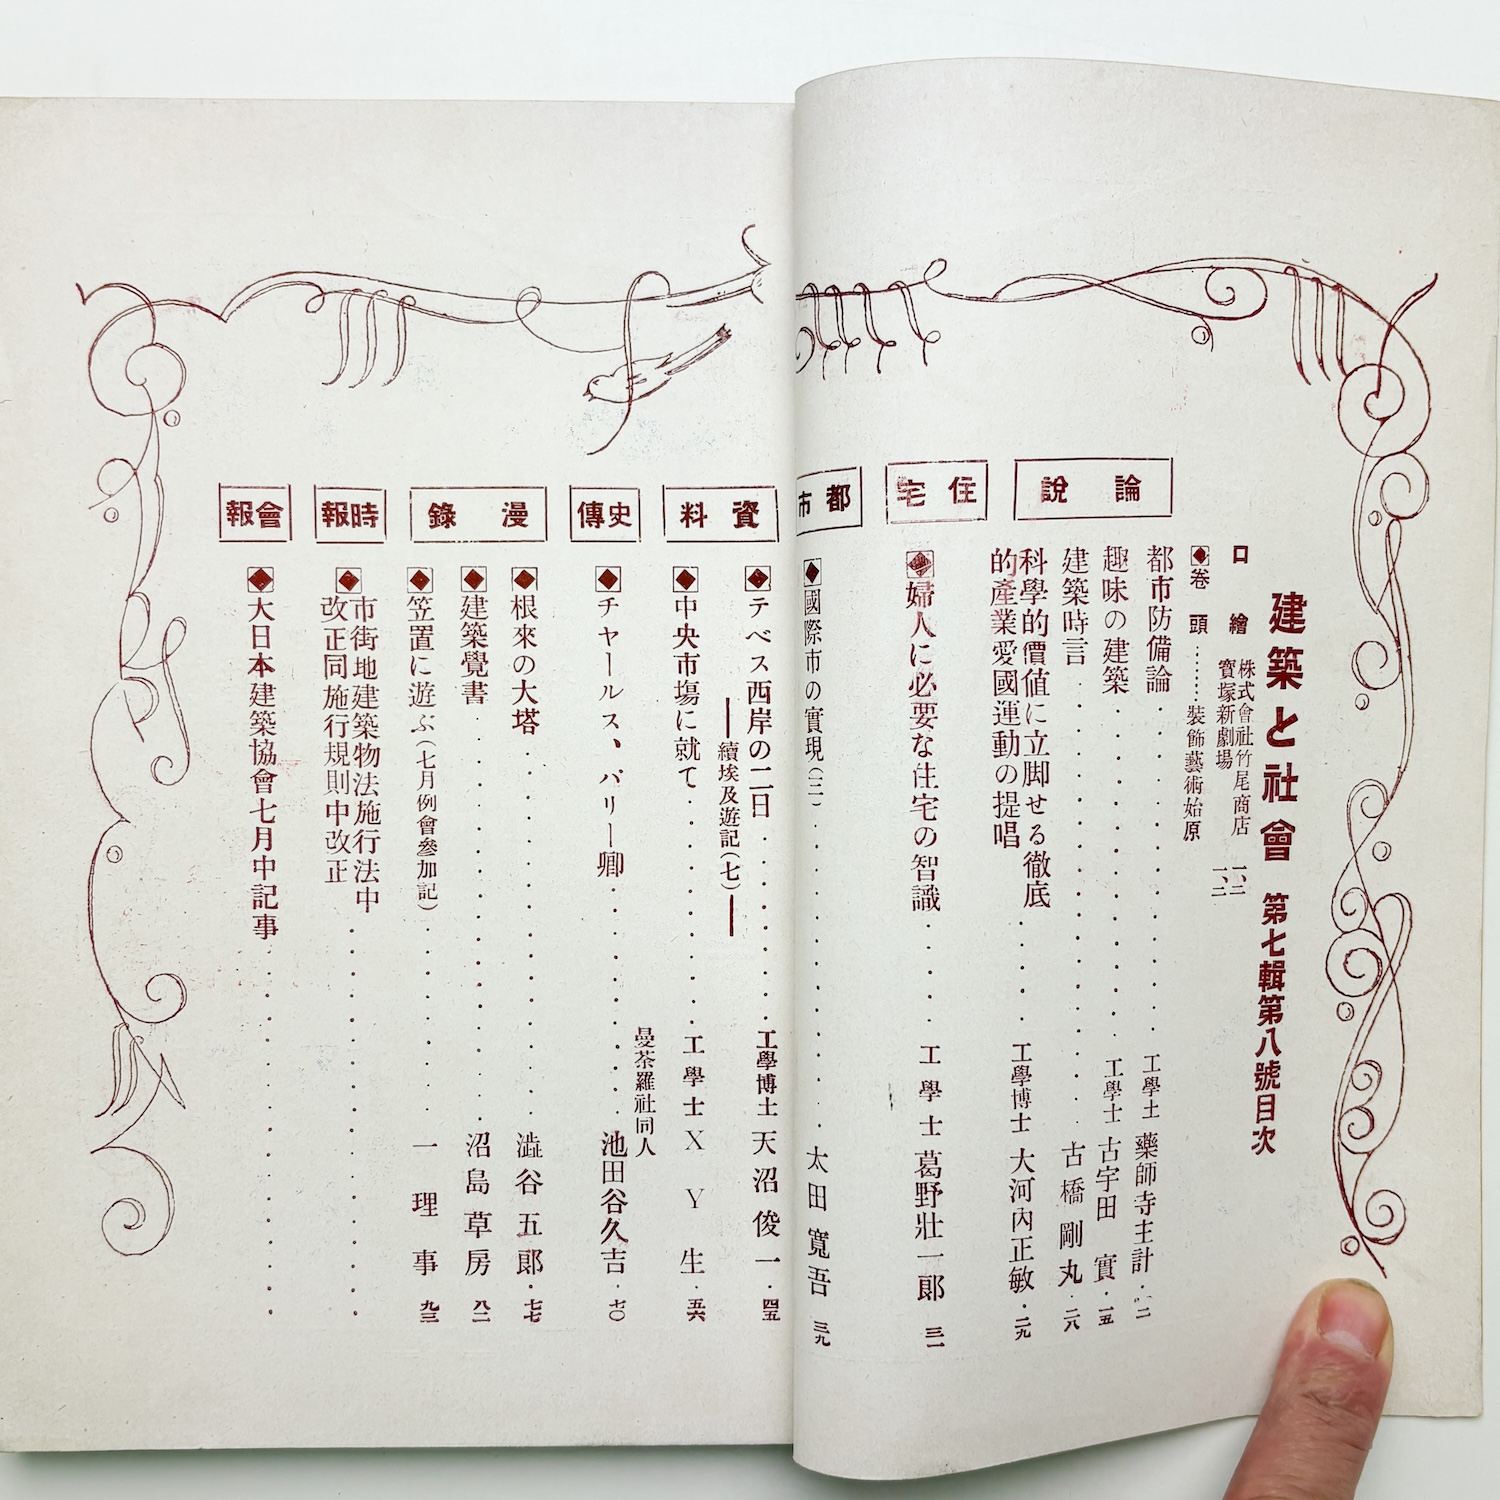 建築と社會 第七輯第八號目次
口繪 株式會社竹尾商店 一、二
寶塚新劇場 一、二
◆卷頭………裝飾藝術始原
論說
都市防備論 工學士 藥師寺主計 二
趣味の建築 工學士 古宇田實 一五
建築時言 古橋剛丸 二八
科學的價値に立脚せる徹底
的產業愛國運動の提唱 工學博士 大河內正敏 二九
住宅
◆婦人に必要な住宅の智識 工學士 葛野壯一郞 三一
都市
◆國際市の實現(二) 太田寬吾 三九
資料
◆テベス西岸の二日 工學博士 天沼俊一 四五
―續埃及遊記(七)―
◆中央市場に就て 工學士 XY生 五六
史傳
曼荼羅社同人
◆チャールス、バリー卿 池田谷久吉 七〇
漫錄
◆根來の大塔 澁谷五郞 七七
◆建築覺書 沼島草房 八二
◆笠置に遊ぶ(七月例會參加記) 一理事 九三
時報
◆市街地建築物法施行法中
改正同施行規則中改正
會報
◆大日本建築協會七月中記事